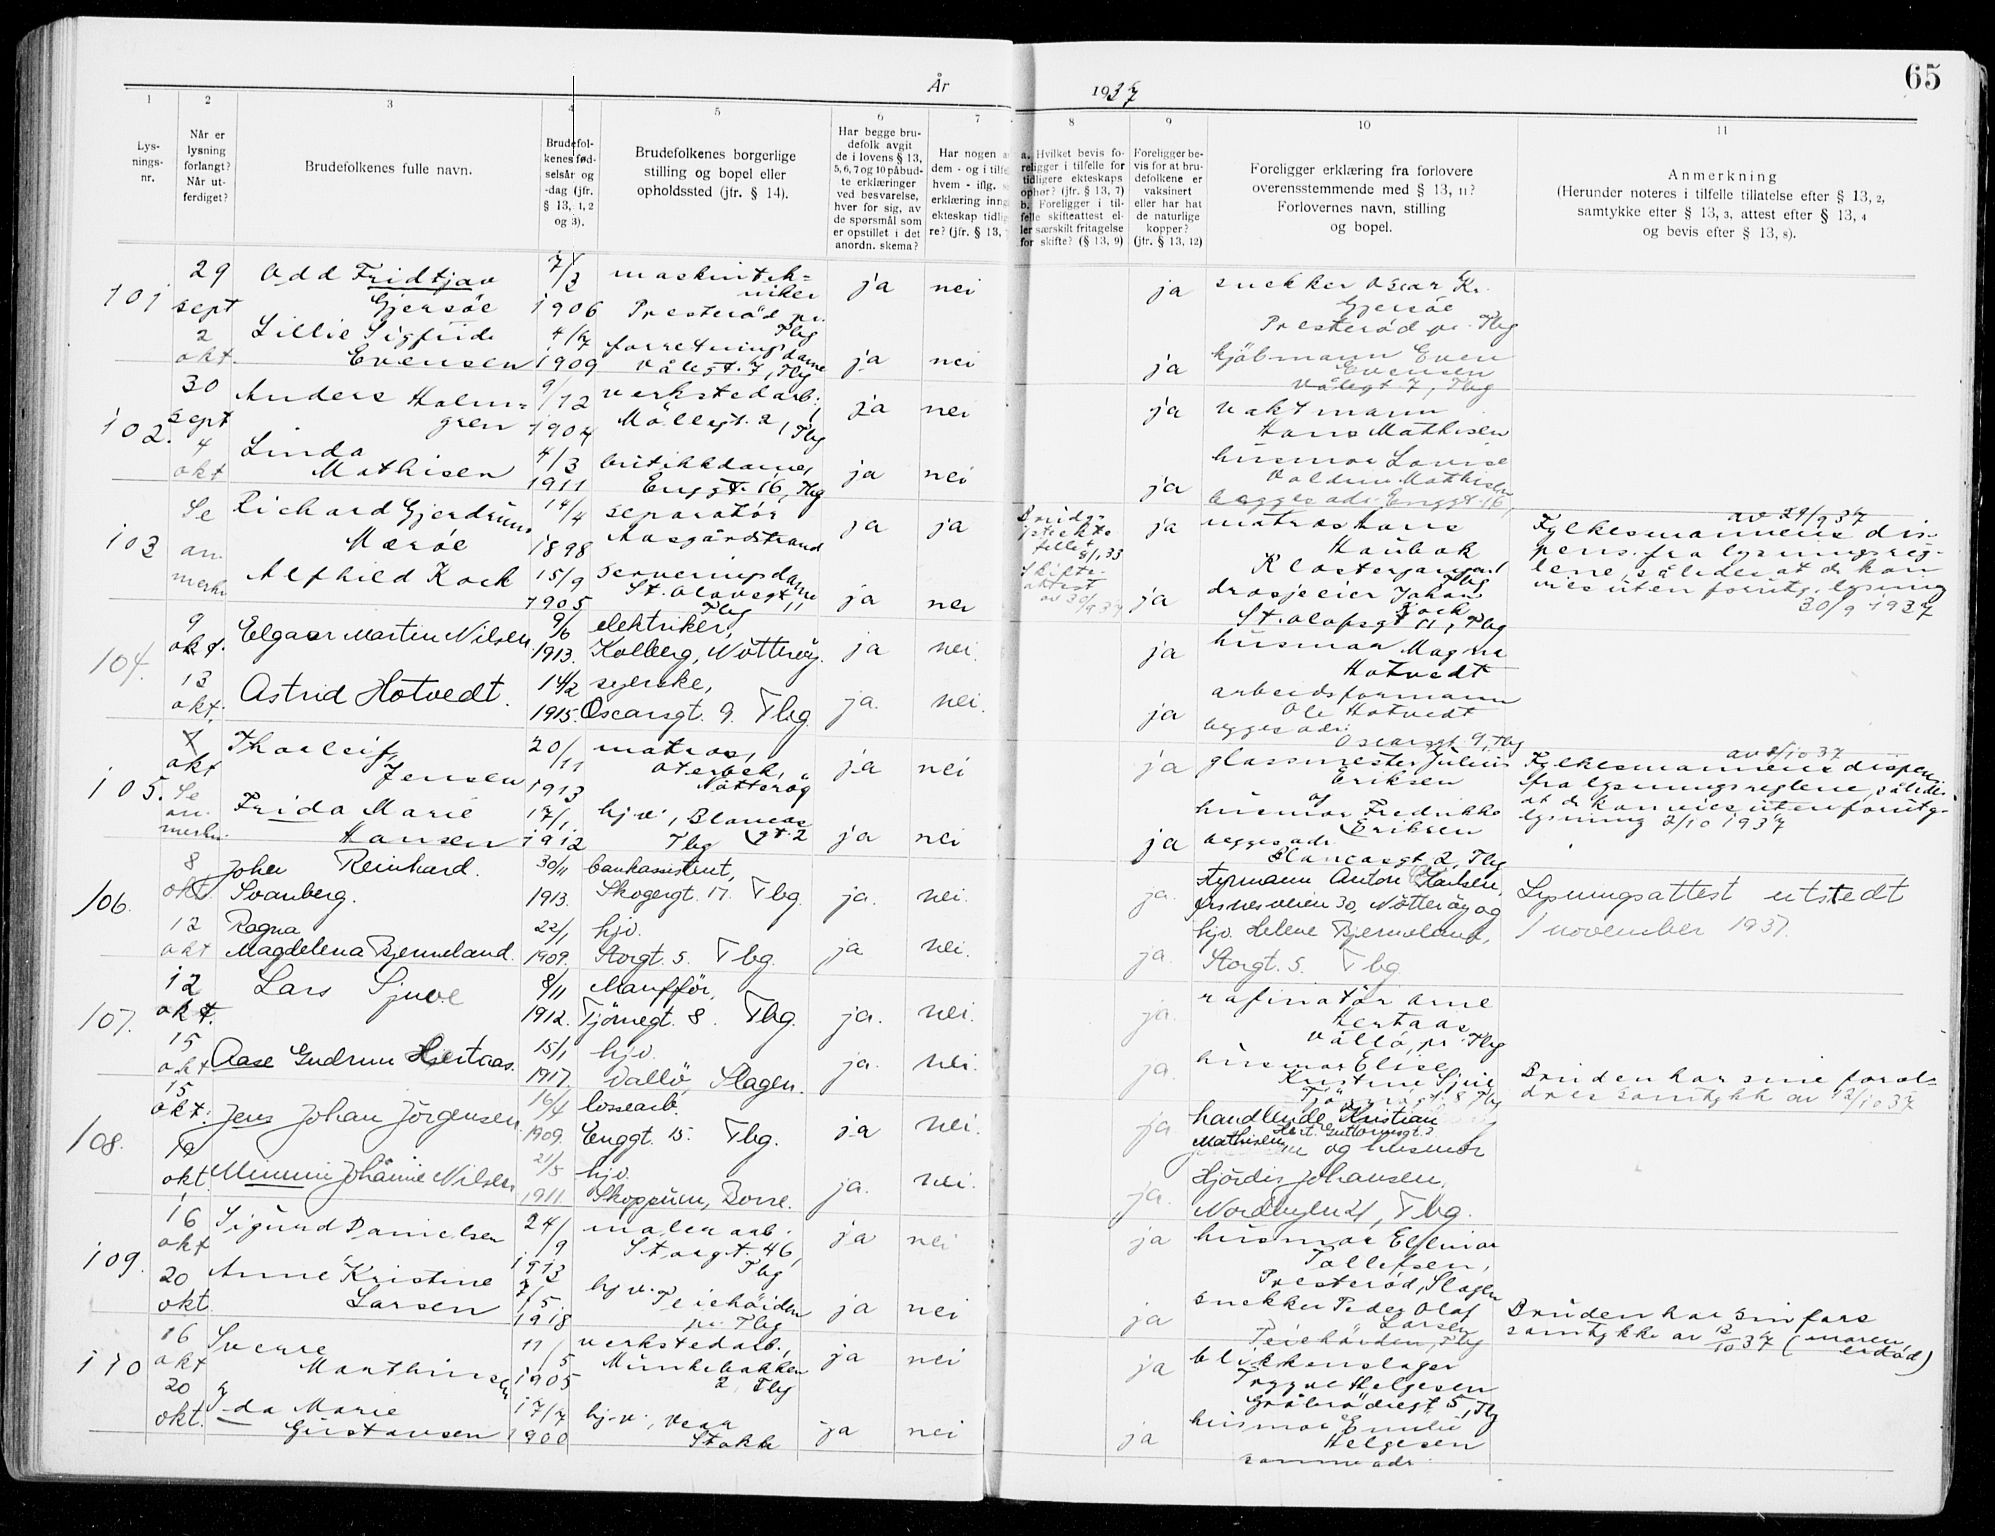 65
År 1937
1 2 3 4 5 6 7 8 9 10 11
Lys-
nings-
nr.
Når er
lysning
forlangt?
Når ut-
ferdiget?
Brudefolkenes fulle navn.
Brudefol-
kenes fød-
selsår og
-dag (jfr.
§ 13, 1, 2
og 3).
Brudefolkenes borgerlige
stilling og bopel eller
opholdssted (jfr. § 14).
Har begge bru-
defolk avgit
de i lovens § 13,
5, 6, 7 og 10 påbud-
te erklæringer
ved besvarelse,
hver for sig, av
de spørsmål som
er opstillet i det
anordn. skema?
Har nogen a
dem - og i tilfe
hvem - iflg. s
erklæring inng
ekteskap tidlig
re? (jfr. § 13,
a. Hvilket bevis fo-
religger i tilfelle for
tidligere ekteskaps
ophør? (jfr. § 13, 7)
b. Foreligger i til-
felle skifteattest el-
ler særskilt fritagelse
for skifte? (§ 13, 9)
Foreligger be-
vis for at bru-
defolkene er
vaksinert
eller har hat
de naturlige
kopper?
(jfr. § 13, 12)
Foreligger erklæring fra forlovere
overensstemmende med § 13, 11?
Forlovernes navn, stilling
og bopel.
Anmerkning
(Herunder noteres i tilfelle tillatelse efter § 13, 2,
samtykke efter § 13, 3, attest efter § 13, 4
og bevis efter § 13, 8).
101
29
sept
2
okt.
Odd Fridtjav
Gjersöe
7/3
1906
maskintek-
niker
Presteröd pr.
Tbg
ja nei ja
snekker Oscar Kr.
Gjersöe
Presteröd pr. Tbg
Lillie Sigfrid
Evensen
4/7
1909
forretningsdame
Vålegt. 7, Tbg
ja nei ja
kjöbmann Even
Evensen
Vålegt 7, Tbg
102.
30
sept
4
okt
Anders Holm-
gren
9/12
1907
verkstedarb.
Möllegt. 2, Tbg
ja nei ja
vaktmann
Hans Mathisen
Linda
Mathisen
4/3
1911
butikkdame,
Enggt. 16, Tbg
ja nei ja
husmor Lovise
Valdun Mathisen
begges adr. Enggt. 16,
103
Se
an-
merkn.
Richard Gjerdrum
Meröe
14/4
1898
separatör
Aasgårdstrand
ja ja
Brude-
skifte-
attest
av 30/9 37
ja
matros Hans
Haubak
Klostergangen
Tbg
av 29/9 37
Fylkesmannens dis-
pens. fra lysningsreg-
lene, således at de kan
vies uten forutg. lysning
30/9 1937
Alfhild Kock
15/9
1905
serveringsdame
St. Olavsgt. 11
Tbg
ja nei ja
drosjeeier Johan
Kock
St. Olafsgt 11, Tbg
104.
9
okt.
13
okt.
Elgaar Martin Nilsen.
9/6
1913.
elektriker,
Kolberg, Nötteröy.
ja nei. ja
husmor Magna
Hotvedt
Astrid Hotvedt.
14/2
1915.
syerske,
Oscarsgt. 9. Tbg.
ja. nei. ja
arbeidsformann
Ole Hotvedt
begges adr.
Oscarsgt 9, Tbg
105.
1
okt
Se
an-
merkn.
Thorleif
Jensen
20/11
1913
matros,
Oterbek,
Nötteröy
ja nei ja
glassmester Julius
Eriksen
av 2/10 37
Fylkesmannens dispen.
fra lysningsreglene, således
at de kan vies uten forutg.
lysning 2/10 1937
Frida Marie
Hansen
17/1
1912
hj.v., Blancas
gt. 2
Tbg
ja nei ja
og
husmor Fredrikke
Eriksen
begges adr.
Blancasgt. 2, Tbg
106.
8
okt.
12
okt
Johan Reinhard.
Svanberg.
30/11
1913.
bankassistent,
Skogergt. 17. Tbg.
ja. nei. ja.
styrmann Anton Karlsen,
Örsnesveien 30, Nötteröy og
Lysningsattest utstedt
1 november 1937.
Ragna
Magdelena Bjerneland.
22/1
1909.
hjv.
Storgt. 5. Tbg.
ja nei. ja.
hjv. Helene Bjerneland,
Storgt. 5. Tbg.
107.
12
okt.
15
okt
Lars Sjuve
8/11
1912.
Maufför,
Tjömegt. 8. Tbg.
ja. nei. ja.
rafinatör Arne
Hertaas
Vallö, pr. Tbg
Aase Gudrun Hjertaas.
15/1
1917
hjv.
Vallö, Slagen.
ja. nei. ja.
husmor Elise
Kristine Sjuve
Tjömegt. 8, Tbg
Bruden har sine forel-
dres samtykke av 12/10 37
108.
15
okt.
16
okt.
Jens Johan Jörgensen
16/4
1909.
lossearb.
Enggt. 15. Tbg.
ja nei. ja
handlende Kristian
Mathisen Hert. Guttormsgt.
og husmor
Mimmi Johanne Nilsen
21/5
1911.
hjv.
Skoppum, Borre.
ja. nei. ja.
Hjördis Johansen,
Nordbyen 21, Tbg.
109.
16
okt
20
okt.
Sigurd Danielsen
24/9
1913
malerarb.
Storgt. 46,
Tbg
ja nei ja
husmor Ellinor
Tollefsen,
Presteröd, Slagen
Anne Kristine
Larsen
7/5
1918
hj.v.
Teiehöiden
pr. Tbg
ja nei ja
snekker Peder Olaf
Larsen
Teiehöiden, Tbg
Bruden har sin fars
samtykke av 12/10 37 (moren
er död)
110
16
okt
20
okt.
Sverre
Marthinsen
11/5
1905
verkstedarb.,
Munkebakken
2, Tbg
ja nei ja
blikkenslager
Trygve Helgesen
Gråbrödregt 5, Tbg
Ida Marie
Gustavsen
17/7
1900
hj.v., Vear
Stokke
ja nei ja
husmor Emilie
Helgesen
samme adr.